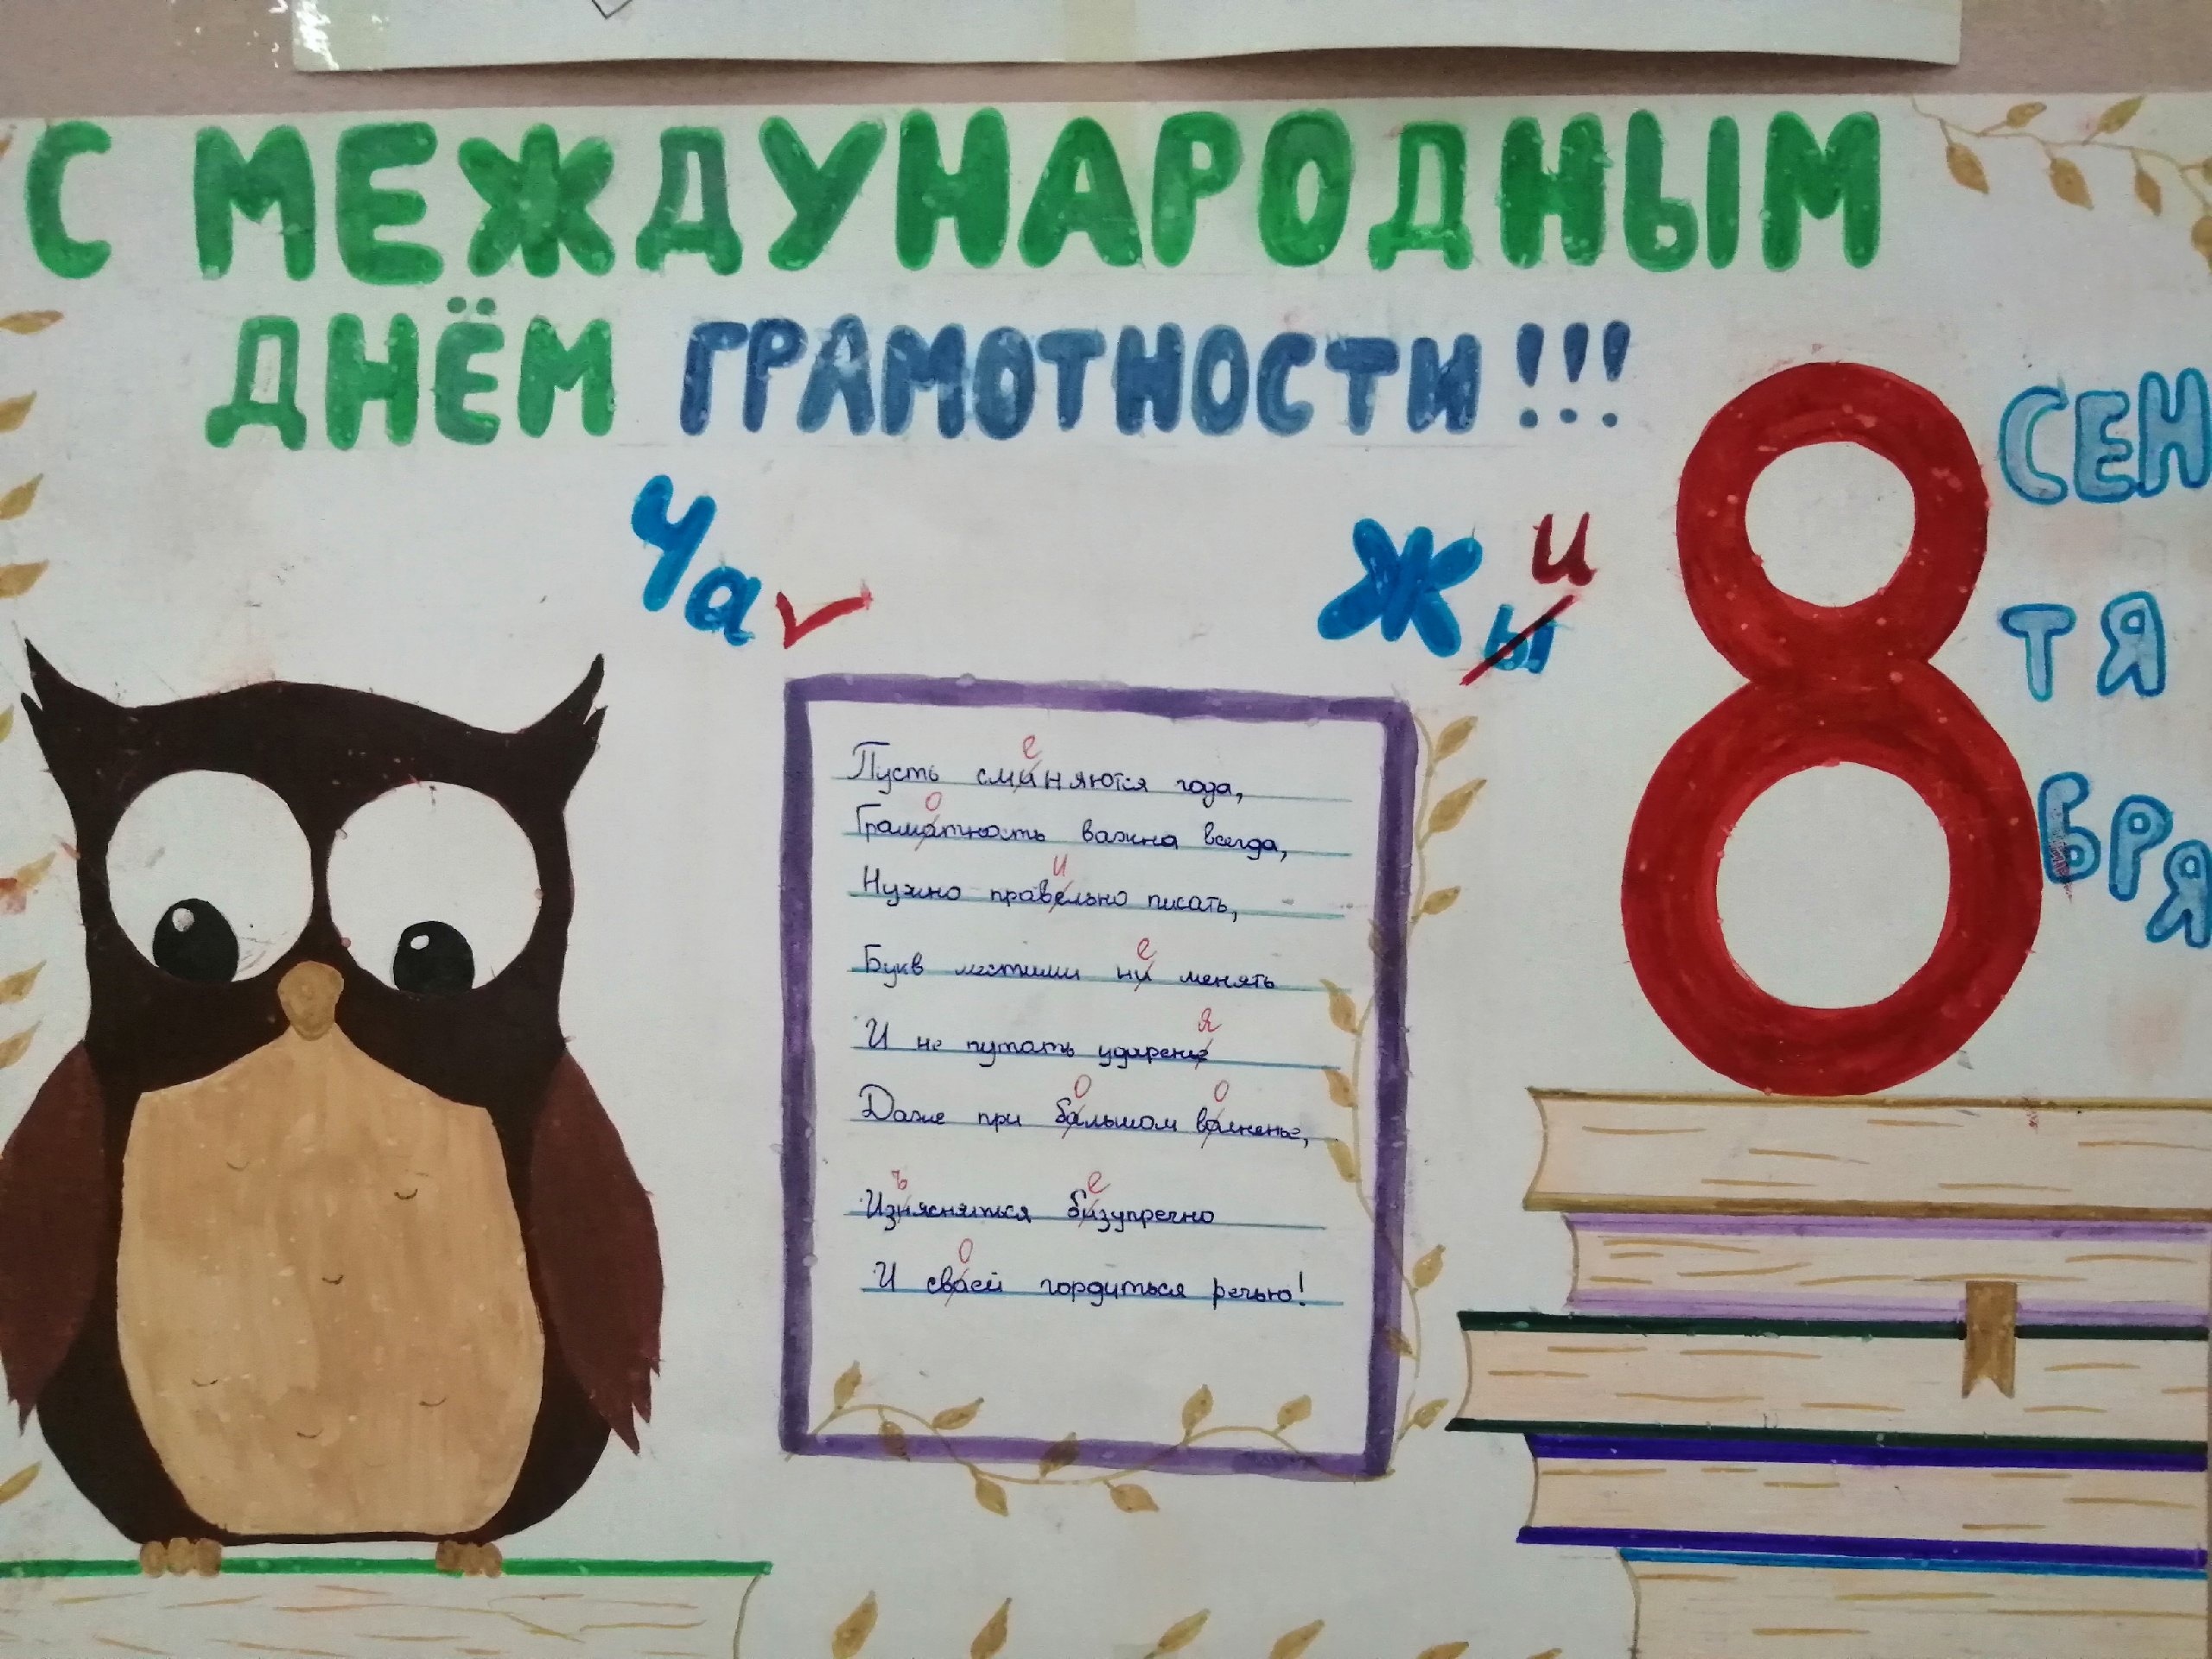 С МЕЖДУНАРОДНЫМ
ДНЁМ ГРАМОТНОСТИ!!!
Ча
и
Жы
8
СЕН
ТЯ
БРЯ
е
Пусть сминяются года,
о
Граматность важна всегда,
и
Нужно правельно писать,
е
Букв местами ни менять
я
И не путать ударение
о о
Даже при бальшом валненье,
ъ е
Изьясняться бизупречно
о
И сваей гордиться речью!